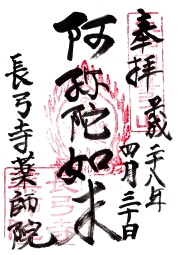 奉拝
平成二十八年
四月三十日
阿弥陀如来
長弓寺薬師院